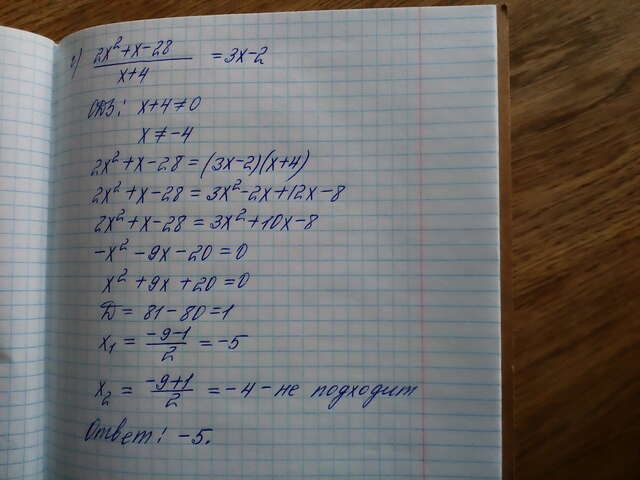 г) (2x²+x-28)/(x+4) = 3x-2
ОДЗ: x+4≠0
x≠-4
2x²+x-28=(3x-2)(x+4)
2x²+x-28=3x²-2x+12x-8
2x²+x-28=3x²+10x-8
-x²-9x-20=0
x²+9x+20=0
D=81-80=1
x₁=(-9-1)/2=-5
x₂=(-9+1)/2=-4-не подходит
Ответ: -5.